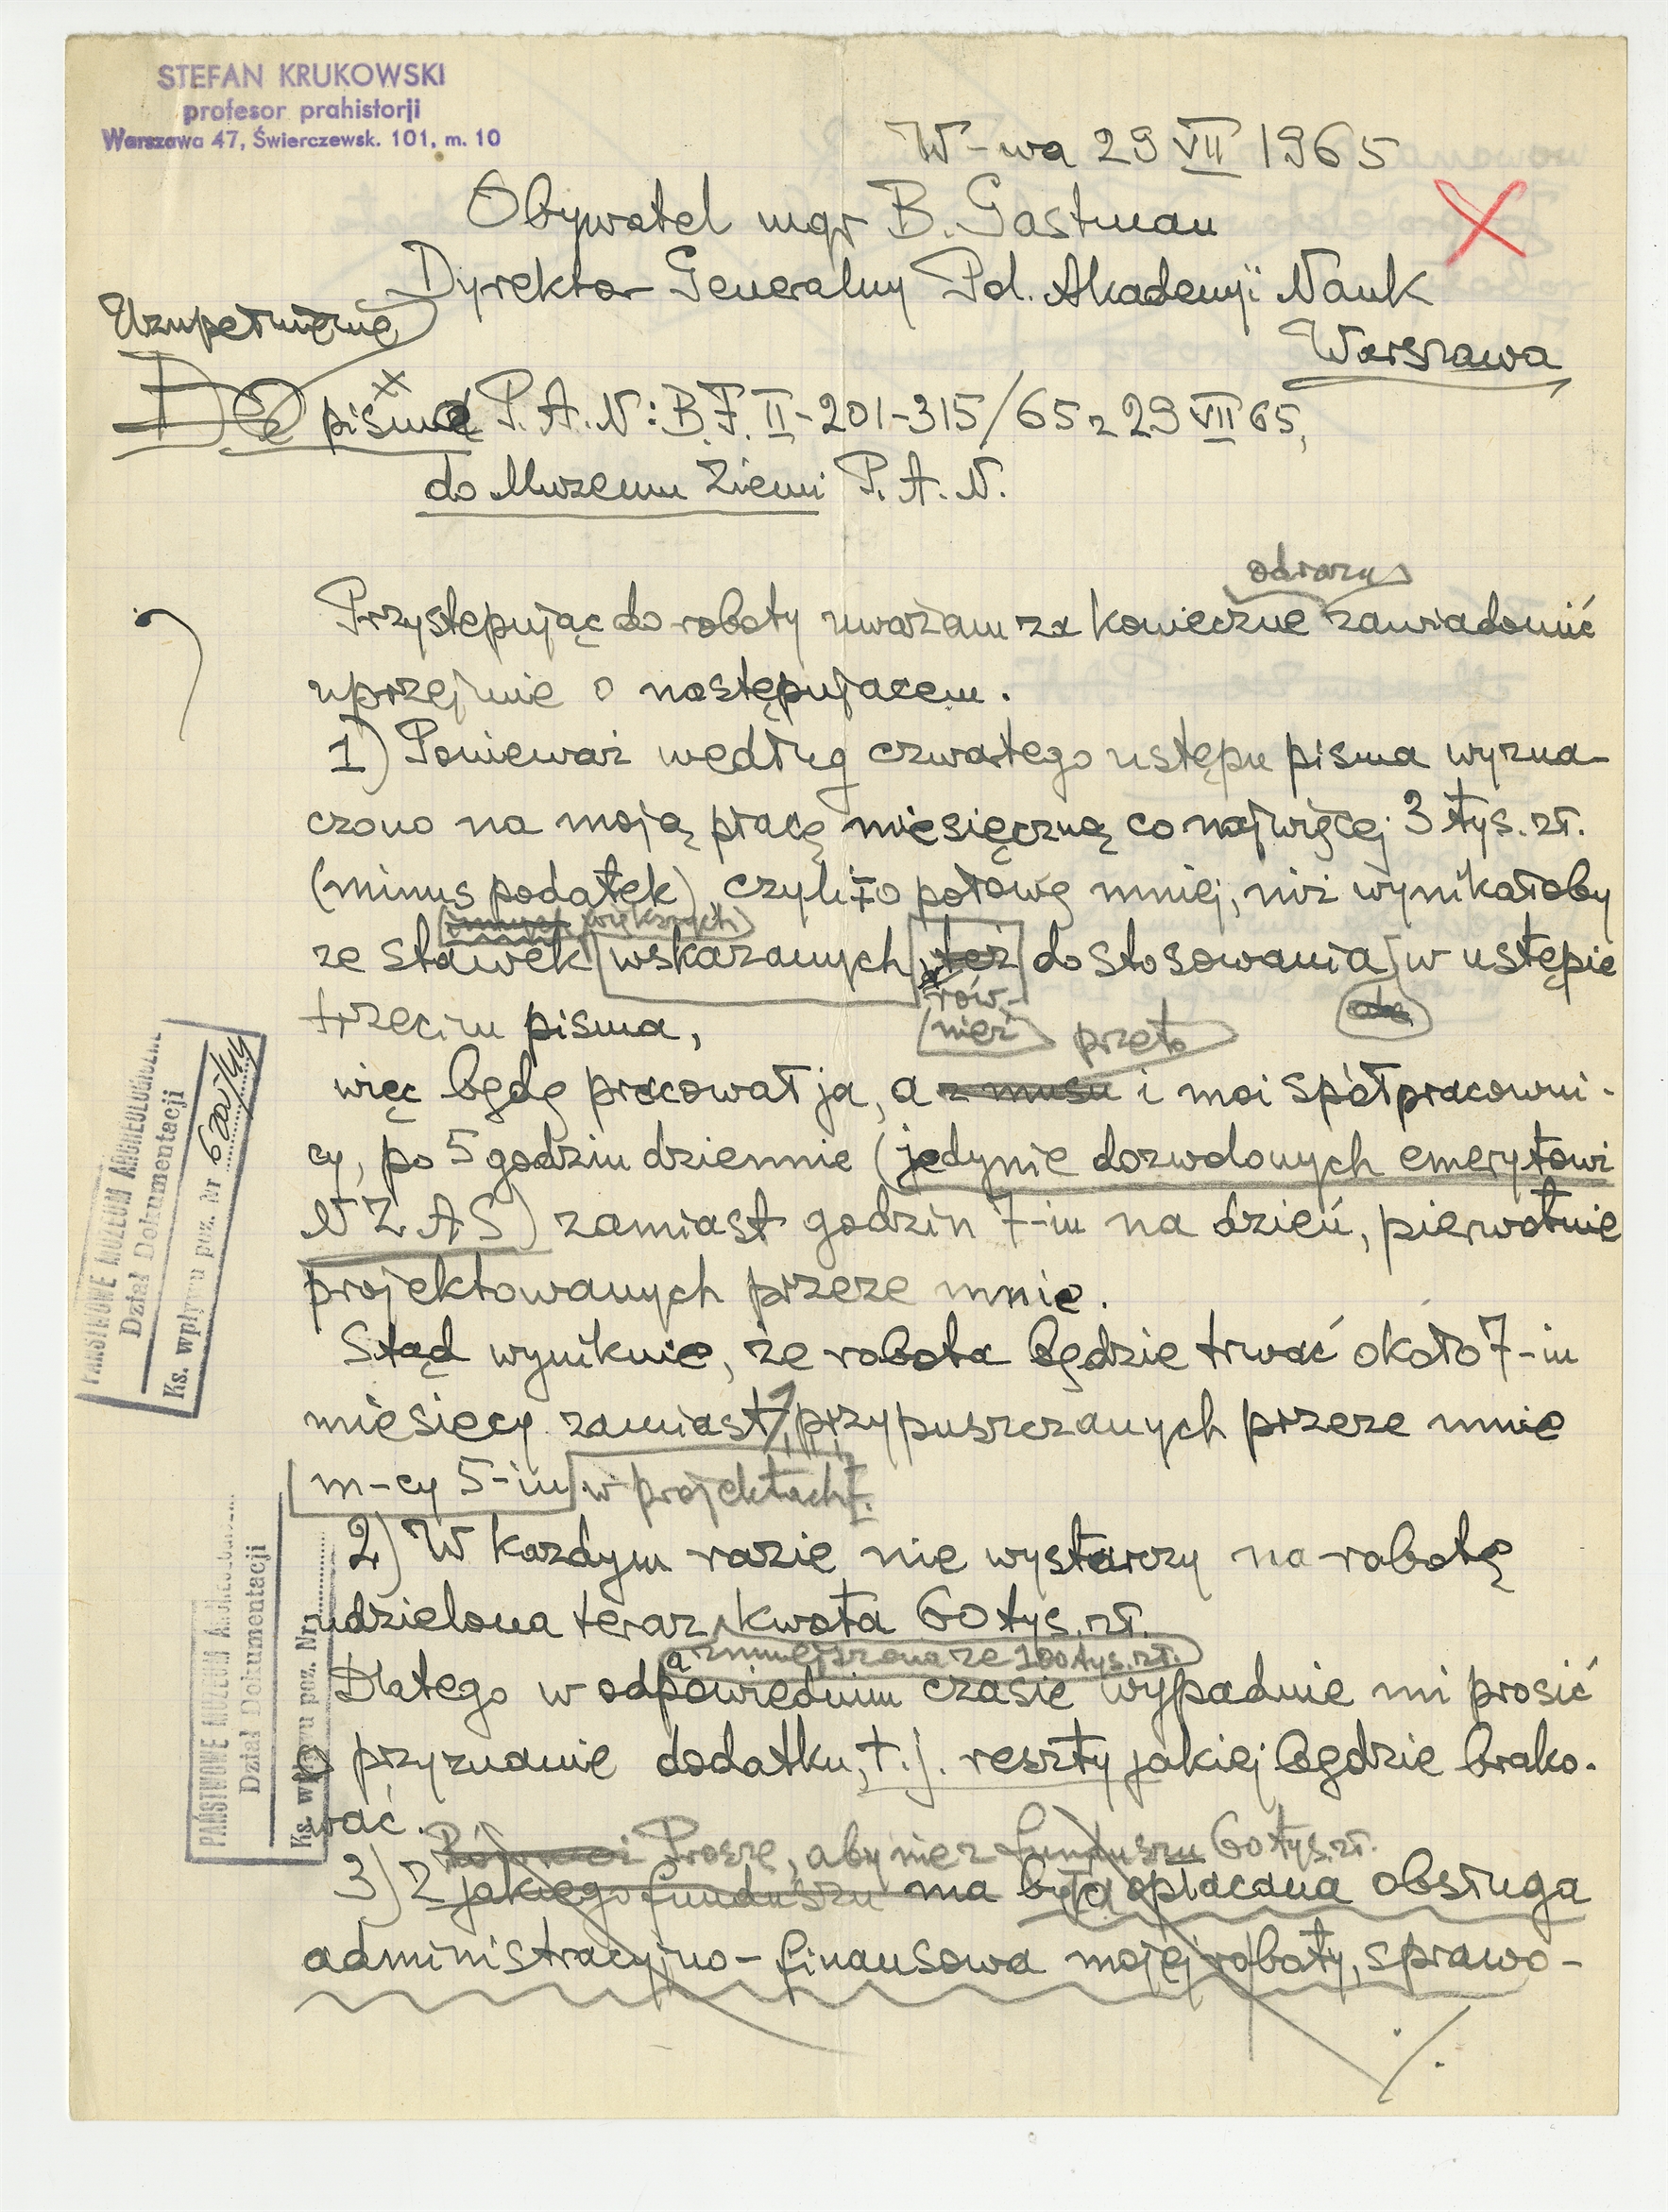 STEFAN KRUKOWSKI
profesor prahistorji
Warszawa 47, Świerczewsk. 101, m. 10
W-wa 29 VII 1965
Obywatel mgr B. Gastman
Dyrektor Generalny Pol. Akademji Nauk
Warszawa
Uzupełnienie
Do pisma P.A.N: B.F. II-201-315/65 z 29 VII 65,
do Muzeum Ziemi P.A.N.
odrazu
Przystępując do roboty uważam za konieczne zawiadomić
uprzejmie o następujacem.
1) Ponieważ według czwartego ustępu pisma wyzna-
czono na moją pracę miesięczną co najwięcej 3 tys. zł.
(minus podatek), czyli o połowę mniej, niż wynikałoby
większych
ze stawek wskazanych też do stosowania w ustępie
rów-
nież
trzecim pisma,
przeto
więc będę pracował ja, a z musu i moi spółpracowni-
cy, po 5 godzin dziennie (jedynie dozwolonych emerytowi
N Z A S) zamiast godzin 7-iu na dzień, pierwotnie
projektowanych przeze mnie.
Stąd wyniknie, że robota będzie trwać około 7-iu
miesięcy zamiast przypuszczanych przeze mnie
m-cy 5-iu w projektach.
2) W każdym razie nie wystarczy na robotę
udzielona teraz kwota 60 tys. zł.
a zmniejszona ze 100 tys. zł.
Dlatego w odpowiednim czasie wypadnie mi prosić
o przyznanie dodatku, t.j. reszty jakiej będzie brako-
wać.
Również Proszę, aby nie z funduszu 60 tys. zł.
3) Z jakiego funduszu ma była opłacana obsługa
administracyjno-finansowa mojej roboty, sprawo-
PAŃSTWOWE MUZEUM ARCHEOLOGICZNE
Dział Dokumentacji
Ks. wpływu poz. Nr
PAŃSTWOWE MUZEUM ARCHEOLOGICZNE
Dział Dokumentacji
Ks. wpływu poz. Nr